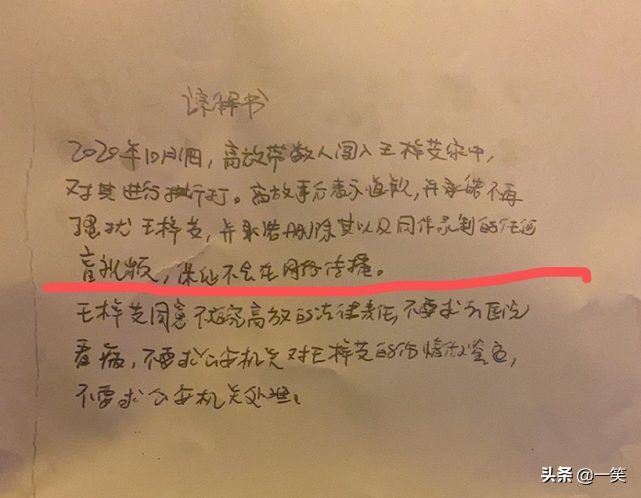 谅解书
2020年10月1日，高放带数人闯入王梓芡家中，
对其进行拼打。高放事后表示道歉，并承诺不再
骚扰王梓芡，并承诺删除其以及同伴录制的任何
音视频，保证不会在网络传播。
王梓芡同意不追究高放的法律责任，不要求去医院
看病，不要求公安机关对王梓芡的伤情做鉴定，
不要求公安机关处理。
头条 @一笑